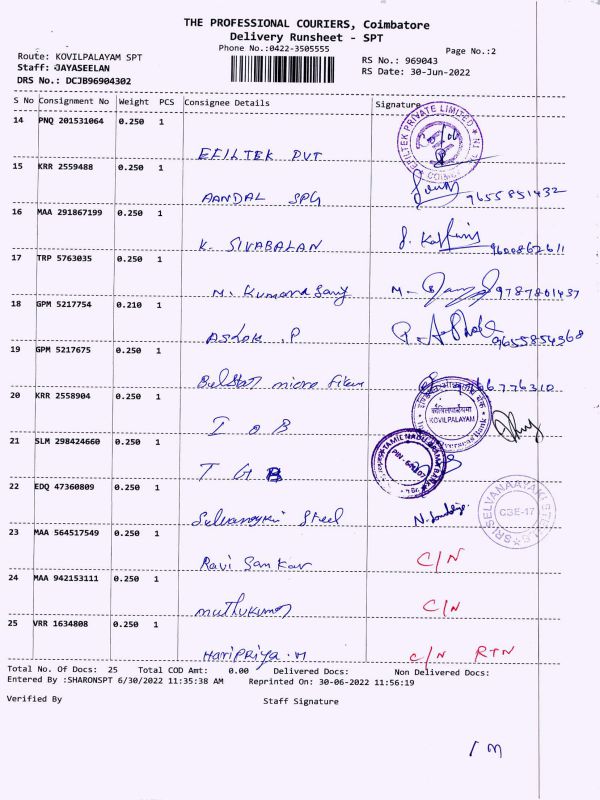 THE PROFESSIONAL COURIERS, Coimbatore
Delivery Runsheet - SPT
Phone No.:0422-3505555
Page No.:2
Route: KOVILPALAYAM SPT
Staff: JAYASEELAN
DRS No.: DCJB96904302
RS No.: 969043
RS Date: 30-Jun-2022
S No Consignment No Weight PCS Consignee Details Signature
14 PNQ 201531064 0.250 1
EFILTEK PVT
EFILTEK PRIVATE LIMITED
15 KRR 2559488 0.250 1
AANDAL SPG 9655851432
16 MAA 291867199 0.250 1
K. SIVABALAN 9600862611
17 TRP 5763035 0.250 1
M. Kumara Samy 9787801437
18 GPM 5217754 0.210 1
Ashok P 9655854368
19 GPM 5217675 0.250 1
micro
20 KRR 2558904 0.250 1
I O B
KOVILPALAYAM
21 SLM 298424660 0.250 1
T G B
22 EDQ 47360809 0.250 1
Steel
SRI SELVANAAYAKI STEELS
CBE-17
23 MAA 564517549 0.250 1
Ravi Sankar C/N
24 MAA 942153111 0.250 1
muthukumar C/N
25 VRR 1634808 0.250 1
Haripriya.M C/N RTN
Total No. Of Docs: 25 Total COD Amt: 0.00 Delivered Docs: Non Delivered Docs:
Entered By :SHARONSPT 6/30/2022 11:35:38 AM Reprinted On: 30-06-2022 11:56:19
Verified By Staff Signature